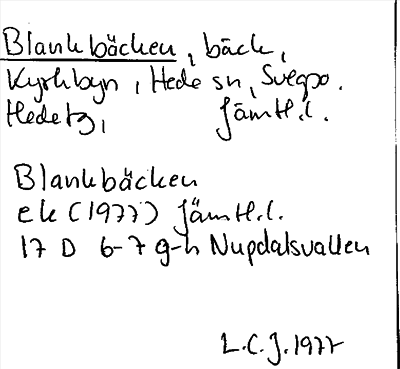 Blankbäcken, bäck,
Kyrkbyn, Hede sn, Svegpo.
Hedetz, Jämtl.l.
Blankbäcken
ek (1977) Jämtl.l.
17 D 6-7 g-h Nupdalsvallen
L.C.J. 1977